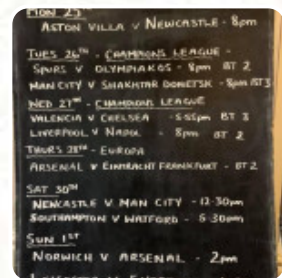 MON 25TH
ASTON VILLA V NEWCASTLE - 8pm
TUES 26TH - CHAMPIONS LEAGUE -
SPURS V OLYMPIAKOS - 8pm BT 2
MAN CITY V SHAKHTAR DONETSK - 8pm BT3
WED 27TH - CHAMPIONS LEAGUE
VALENCIA V CHELSEA - 5-55pm BT 3
LIVERPOOL V NAPOLI - 8pm BT 2
THURS 28TH - EUROPA
ARSENAL V EINTRACHT FRANKFURT - BT 2
SAT 30TH
NEWCASTLE V MAN CITY - 12-30pm
SOUTHAMPTON V WATFORD - 5-30pm
SUN 1ST
NORWICH V ARSENAL - 2pm